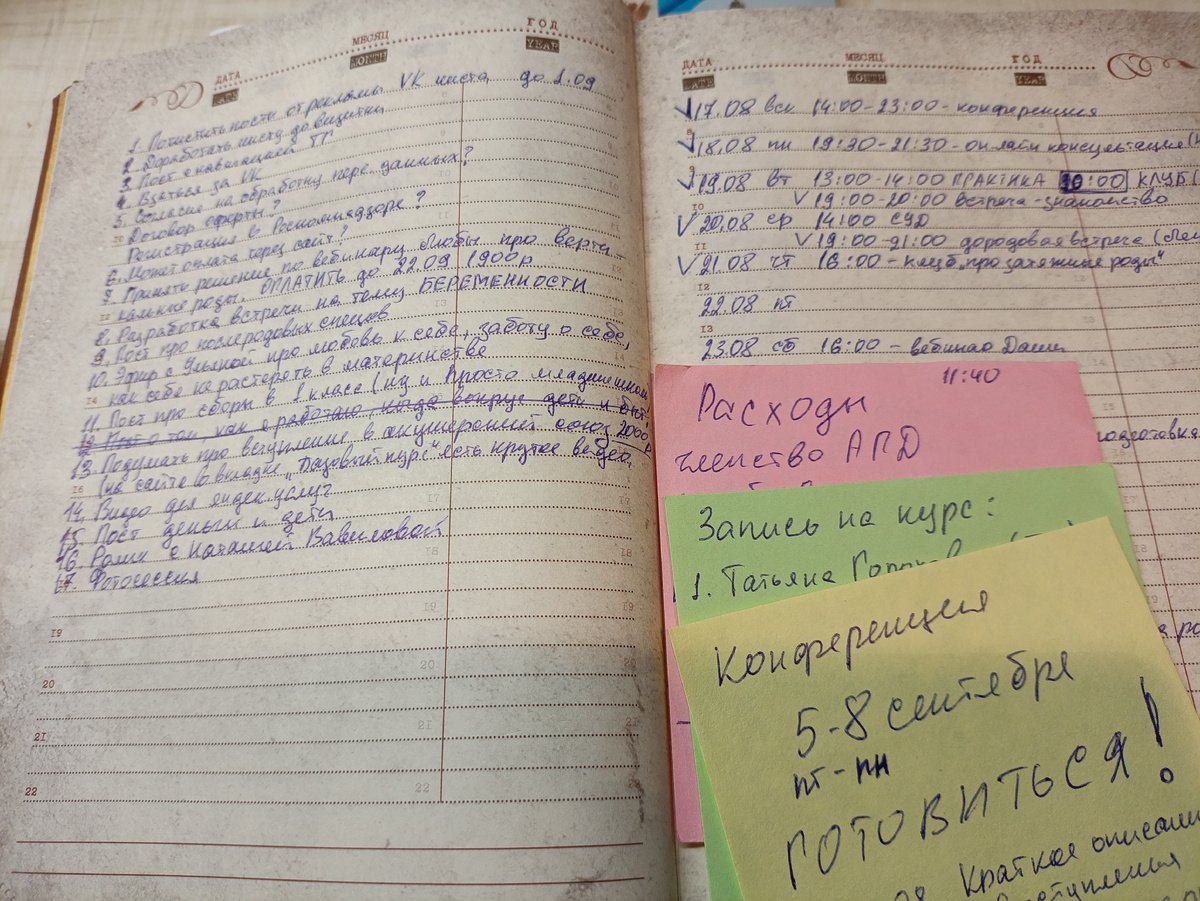 ДАТА
DATE
МЕСЯЦ
MONTH
ГОД
YEAR
VK чиста до 1.09
1. Почистить посты от рекламы
2. Доработать чисту до визитки
3. Пост с навигацией ТГ
4. Взяться за VK
5. Согласие на обработку перс. данных?
Договор оферты?
Регистрация в Роскомнадзоре?
6. Может оплата через сайт?
7. Принять решение по вебинару Любы про верти-
кальные роды. ОПЛАТИТЬ до 22.09 1900р
8. Разработка встречи на тему БЕРЕМЕННОСТИ
9. Пост про послеродовых спецов
10. Эфир с Ульяной про любовь к себе, заботу о себе,
как себя не растерять в материнстве
11. Пост про сборы в 1 класс (ну и просто
12. Пост о том, как я работаю, когда вокруг дети и быт!
13. Подумать про вступление в акушерский союз 2000р
(на сайте во вкладке „Базовый курс" есть крутое видео,
14. Видео для яндек услуг
15. Пост деньги и дети
16. Ролик с Наташей Вавиловой
17. Фотосессия
19
20
21
22
ДАТА
DATE
МЕСЯЦ
MONTH
ГОД
YEAR
V 17.08 вск 14:00-23:00 - конференция
V 18.08 пн 19:30-21:30 - онлайн консультация
V 19.08 вт 13:00-14:00 ПРАКТИКА 10:00 КЛУБ
V 19:00-20:00 встреча-знакомство
V 20.08 ср 14:00 СУД
V 19:00-21:00 дородовая встреча
V 21.08 чт 16:00 - клуб „про затяжные роды"
22.08 пт
23.08 сб 16:00 - вебинар Даши
11:40
Расходы
членство АПД
подготовка
Запись на курс:
1. Татьяна
Конференция
5-8 сентября
пт-пн
ГОТОВИТЬСЯ!
Краткое описание
выступления